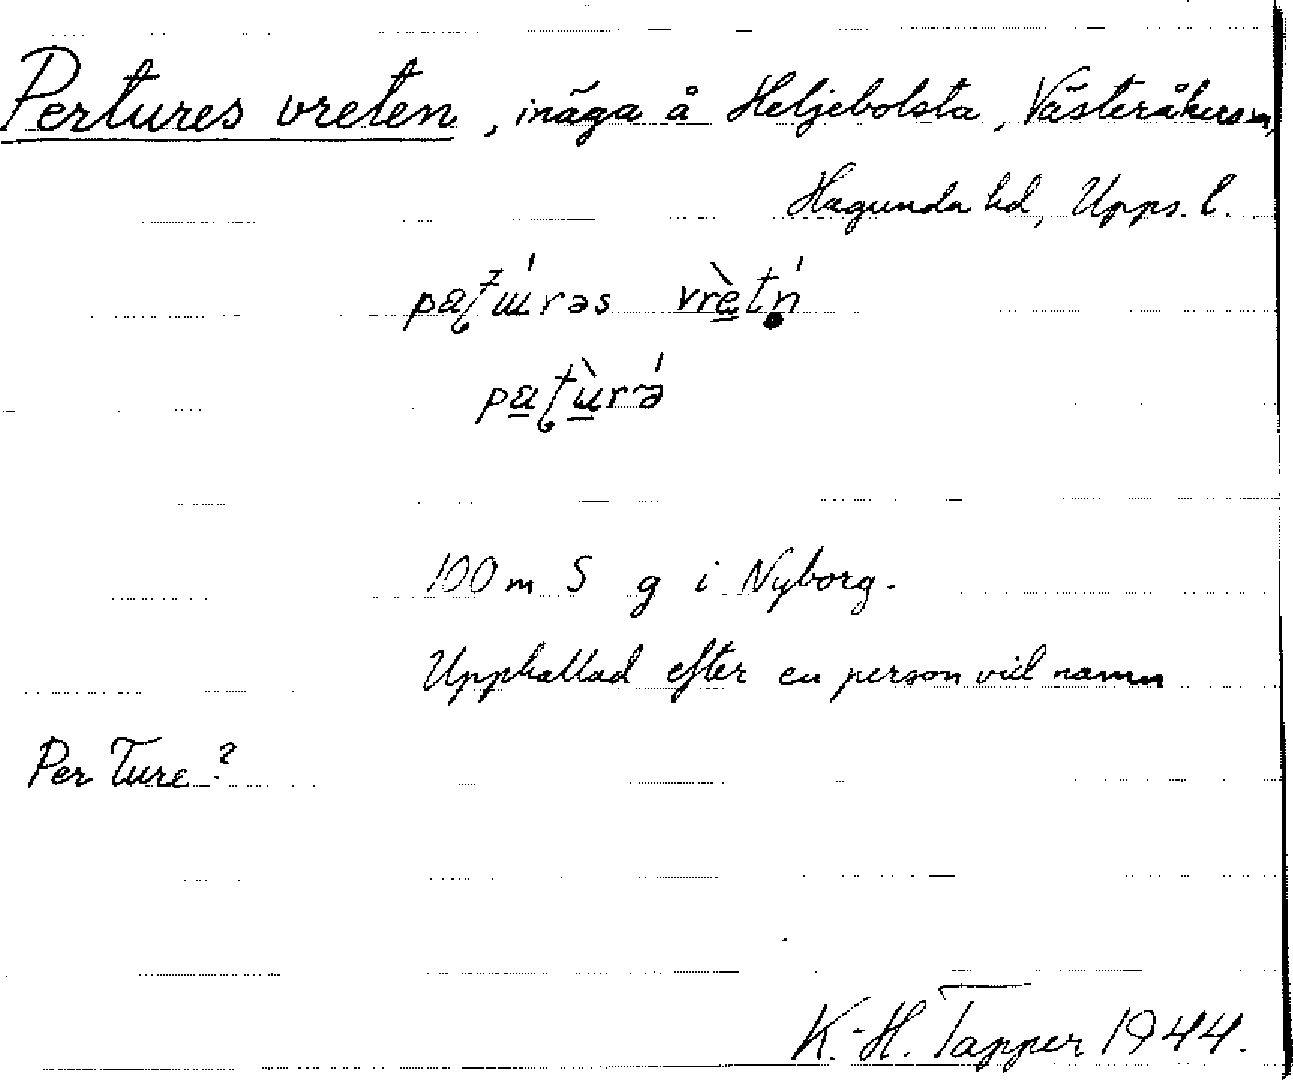 Pertures vreten, inäga å Heljebolsta, Västeråkers sn,
Hagunda hd, Upps. l.
100 m S g i Nyborg.
Uppkallad efter en person vid namn
Per Ture?
K.-H. Tapper 1944.